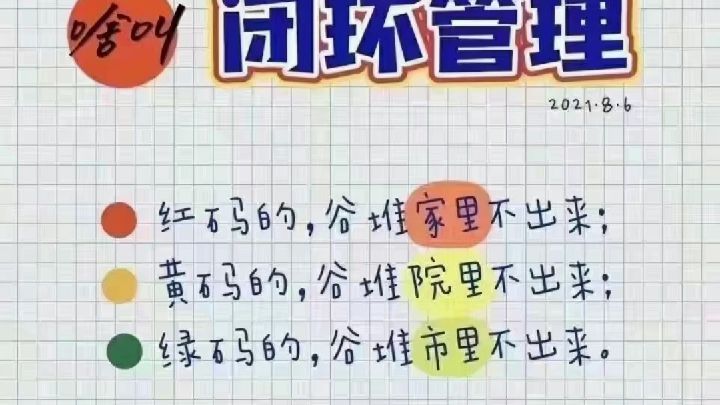 啥叫 闭环管理
2021.8.6
红码的,谷堆家里不出来;
黄码的,谷堆院里不出来;
绿码的,谷堆市里不出来。